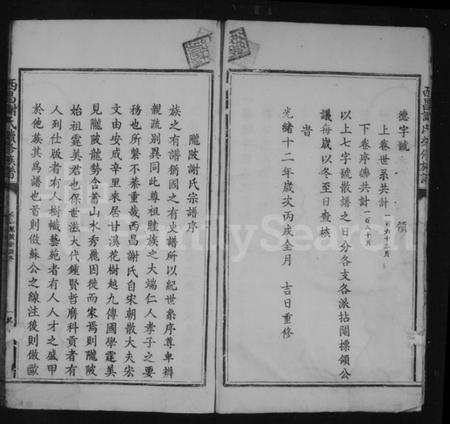 德字號 領
上卷世系共計一百六十二頁
下卷序牒共計一百八十頁
以上七字號散譜之日分各支各派拈鬮標領公
議每歲以冬至日查核
旹
光緒十二年歲次丙戌仝月 吉日重修
隴陂謝氏宗譜序
族之有譜猶國之有史譜所以紀世系序尊卑辨
親疏別異同此尊祖睦族之大端仁人孝子之要
務也所繫不綦重哉西昌謝氏自宋朝散大夫宏
文由安成辛里來居甘溪花樹越九傳國學霆美
見隴陂龍勢含蓄山水秀麗因徙而家焉則隴陂
始祖霆美君也保世滋大代鍾賢哲膺科貢者有
人列仕版者有人樹幟藝苑者有人人才之盛甲
於他族其為譜也首則倣蘇公之線注後則倣歐